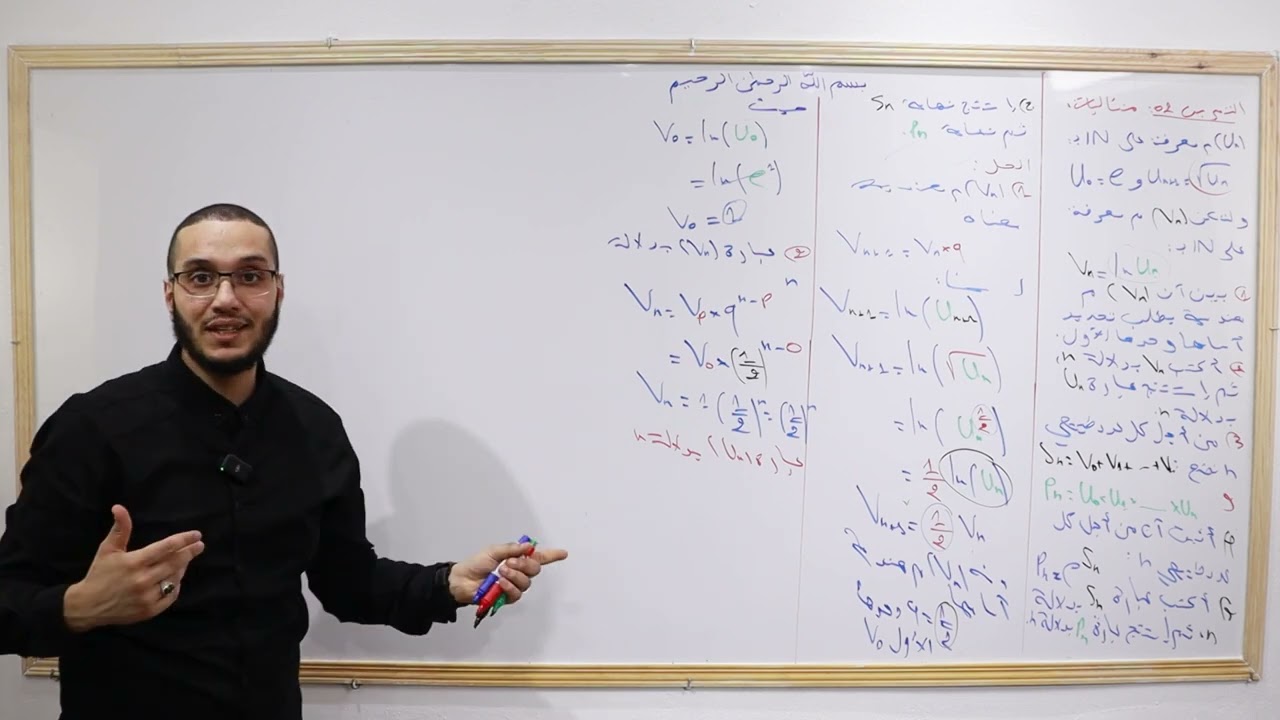 بسم الله الرحمن الرحيم
التمرين 02: متتاليات:
(Un) م معرفة على IN بـ:
U₀=e و Uₙ₊₁=√Uₙ
ولتكن (Vₙ) م معرفة
على IN بـ:
Vₙ=ln Uₙ
① بين أن (Vₙ) م
هندسية يطلب تحديد
أساسها وحدها الأول.
② أكتب Vₙ بدلالة n:
ثم إستنتج عبارة Uₙ
بدلالة n:
③ من أجل كل عدد طبيعي
n نضع: Sₙ=V₀+V₁+...+Vₙ
و
Pₙ=U₀×U₁×.....×Uₙ
أثبت أن من أجل كل
عدد طبيعي n: Pₙ=e^Sₙ
أكتب عبارة Sₙ بدلالة
n، ثم إستنتج عبارة Pₙ بدلالة n.
إستنتج نهاية Sₙ
ثم نهاية Pₙ.
الحل:
① (Vₙ) م هندسية
معناه
Vₙ₊₁=Vₙ×q
لدينا:
Vₙ₊₁=ln(Uₙ₊₁)
Vₙ₊₁=ln(√Uₙ)
=ln(Uₙ^½)
=½ ln(Uₙ)
Vₙ₊₁=½ Vₙ
ومنه (Vₙ) م هندسية
أساسها q=½ وحدها
الأول V₀
حيث
V₀=ln(U₀)
=ln(e¹)
V₀=1
② عبارة (Vₙ) بدلالة
n
Vₙ=Vₚ×qⁿ⁻ᵖ
=V₀×(½)ⁿ⁻⁰
Vₙ=1(½)ⁿ=(½)ⁿ
عبارة (Uₙ) بدلالة n